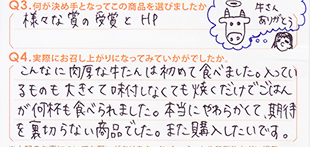 Q3.何が決め手となってこの商品を選びましたか
様々な賞の受賞と HP
牛さん
ありがとう
Q4.実際にお召し上がりになってみていかがでしたか
こんなに肉厚な牛たんは初めて食べました。入ってい
るものも大きくて味付しなくても焼くだけでごはん
が何杯も食べられました。本当にやわらかくて、期待
を裏切らない商品でした。また購入したいです。